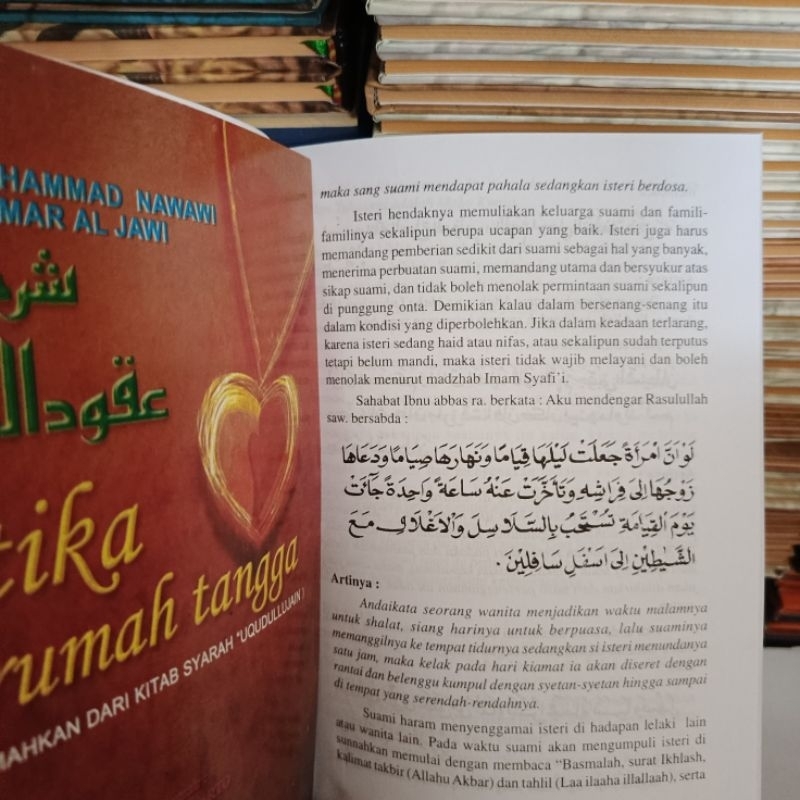 HAMMAD NAWAWI
MAR AL JAWI
شرح
عقود ال
tika
rumah tangga
AHKAN DARI KITAB SYARAH "UQUDULLUJAIN)
maka sang suami mendapat pahala sedangkan isteri berdosa.
Isteri hendaknya memuliakan keluarga suami dan famili-
familinya sekalipun berupa ucapan yang baik. Isteri juga harus
memandang pemberian sedikit dari suami sebagai hal yang banyak,
menerima perbuatan suami, memandang utama dan bersyukur atas
sikap suami, dan tidak boleh menolak permintaan suami sekalipun
di punggung onta. Demikian kalau dalam bersenang-senang itu
dalam kondisi yang diperbolehkan. Jika dalam keadaan terlarang,
karena isteri sedang haid atau nifas, atau sekalipun sudah terputus
tetapi belum mandi, maka isteri tidak wajib melayani dan boleh
menolak menurut madzhab Imam Syafi'i.
Sahabat Ibnu abbas ra. berkata : Aku mendengar Rasulullah
saw. bersabda :
لَوْ اَنَّ امْرَأَةً جَعَلَتْ لَيْلَهَا قِيَامًا وَنَهَارَهَا صِيَامًا وَدَعَاهَا
زَوْجُهَا اِلَى فِرَاشِهِ وَتَأَخَّرَتْ عَنْهُ سَاعَةً وَاحِدَةً جَآئَتْ
يَوْمَ الْقِيَامَةِ تُسْحَبُ بِالسَّلَاسِلِ وَالْاَغْلَالِ مَعَ
الشَّيٰطِيْنِ اِلَى اَسْفَلِ سَافِلِيْنَ .
Artinya :
Andaikata seorang wanita menjadikan waktu malamnya
untuk shalat, siang harinya untuk berpuasa, lalu suaminya
memanggilnya ke tempat tidurnya sedangkan si isteri menundanya
satu jam, maka kelak pada hari kiamat ia akan diseret dengan
rantai dan belenggu kumpul dengan syetan-syetan hingga sampai
di tempat yang serendah-rendahnya.
Suami haram menyenggamai isteri di hadapan lelaki lain
atau wanita lain. Pada waktu suami akan mengumpuli isteri di
sunnahkan memulai dengan membaca "Basmalah, surat Ikhlash,
kalimat takbir (Allahu Akbar) dan tahlil (Laa ilaaha illallaah), serta